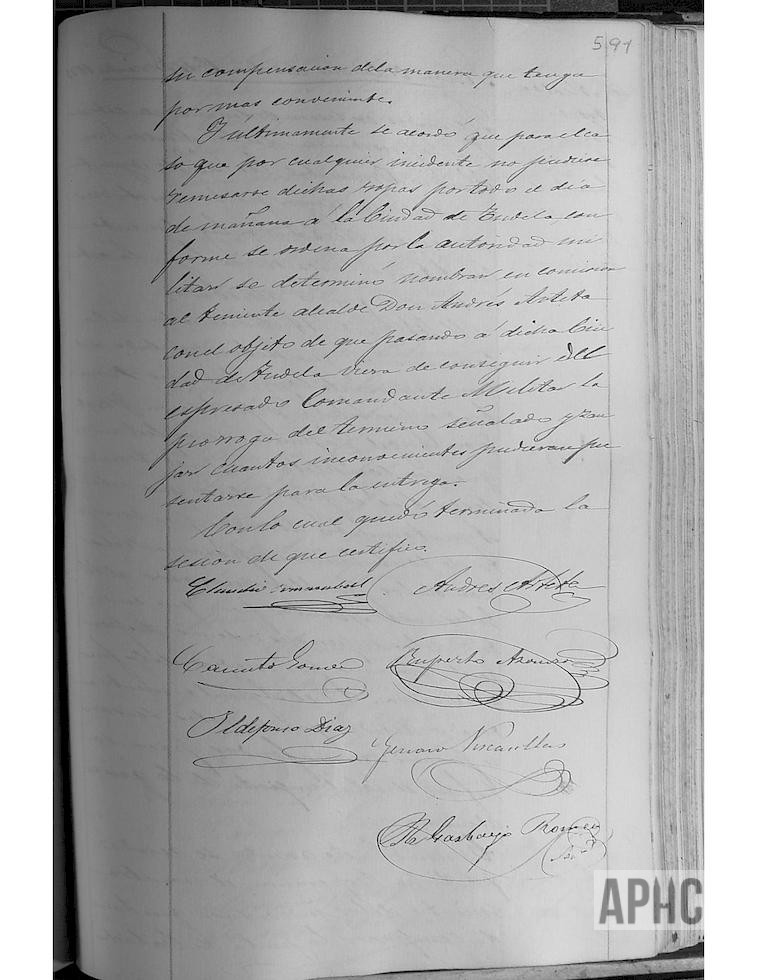 591
su compensacion dela manera que tenga
por mas conveniente.
Y últimamente se acordó que para el ca
so que por cualquier incidente no pudiese
remesarse dichas ropas por todo el dia
de mañana á la Ciudad de Tudela, con
forme se ordena por la autoridad mi
litar se determinó nombrar en comision
al teniente alcalde Don Andrés Arteta
con el objeto de que pasando á dicha Ciu
dad de Tudela viera de conseguir del
espresado Comandante Militar la
prorroga del termino señalado y zan
jar cuantos inconvenientes pudieran pre
sentarse para la entrega.
Con lo cual quedó terminada la
sesion de que certifico.
Claudio
Andres Arteta
Canuto Gomez
Ruperto
Ildefonso Diaz
Genaro
Romeo
APHC